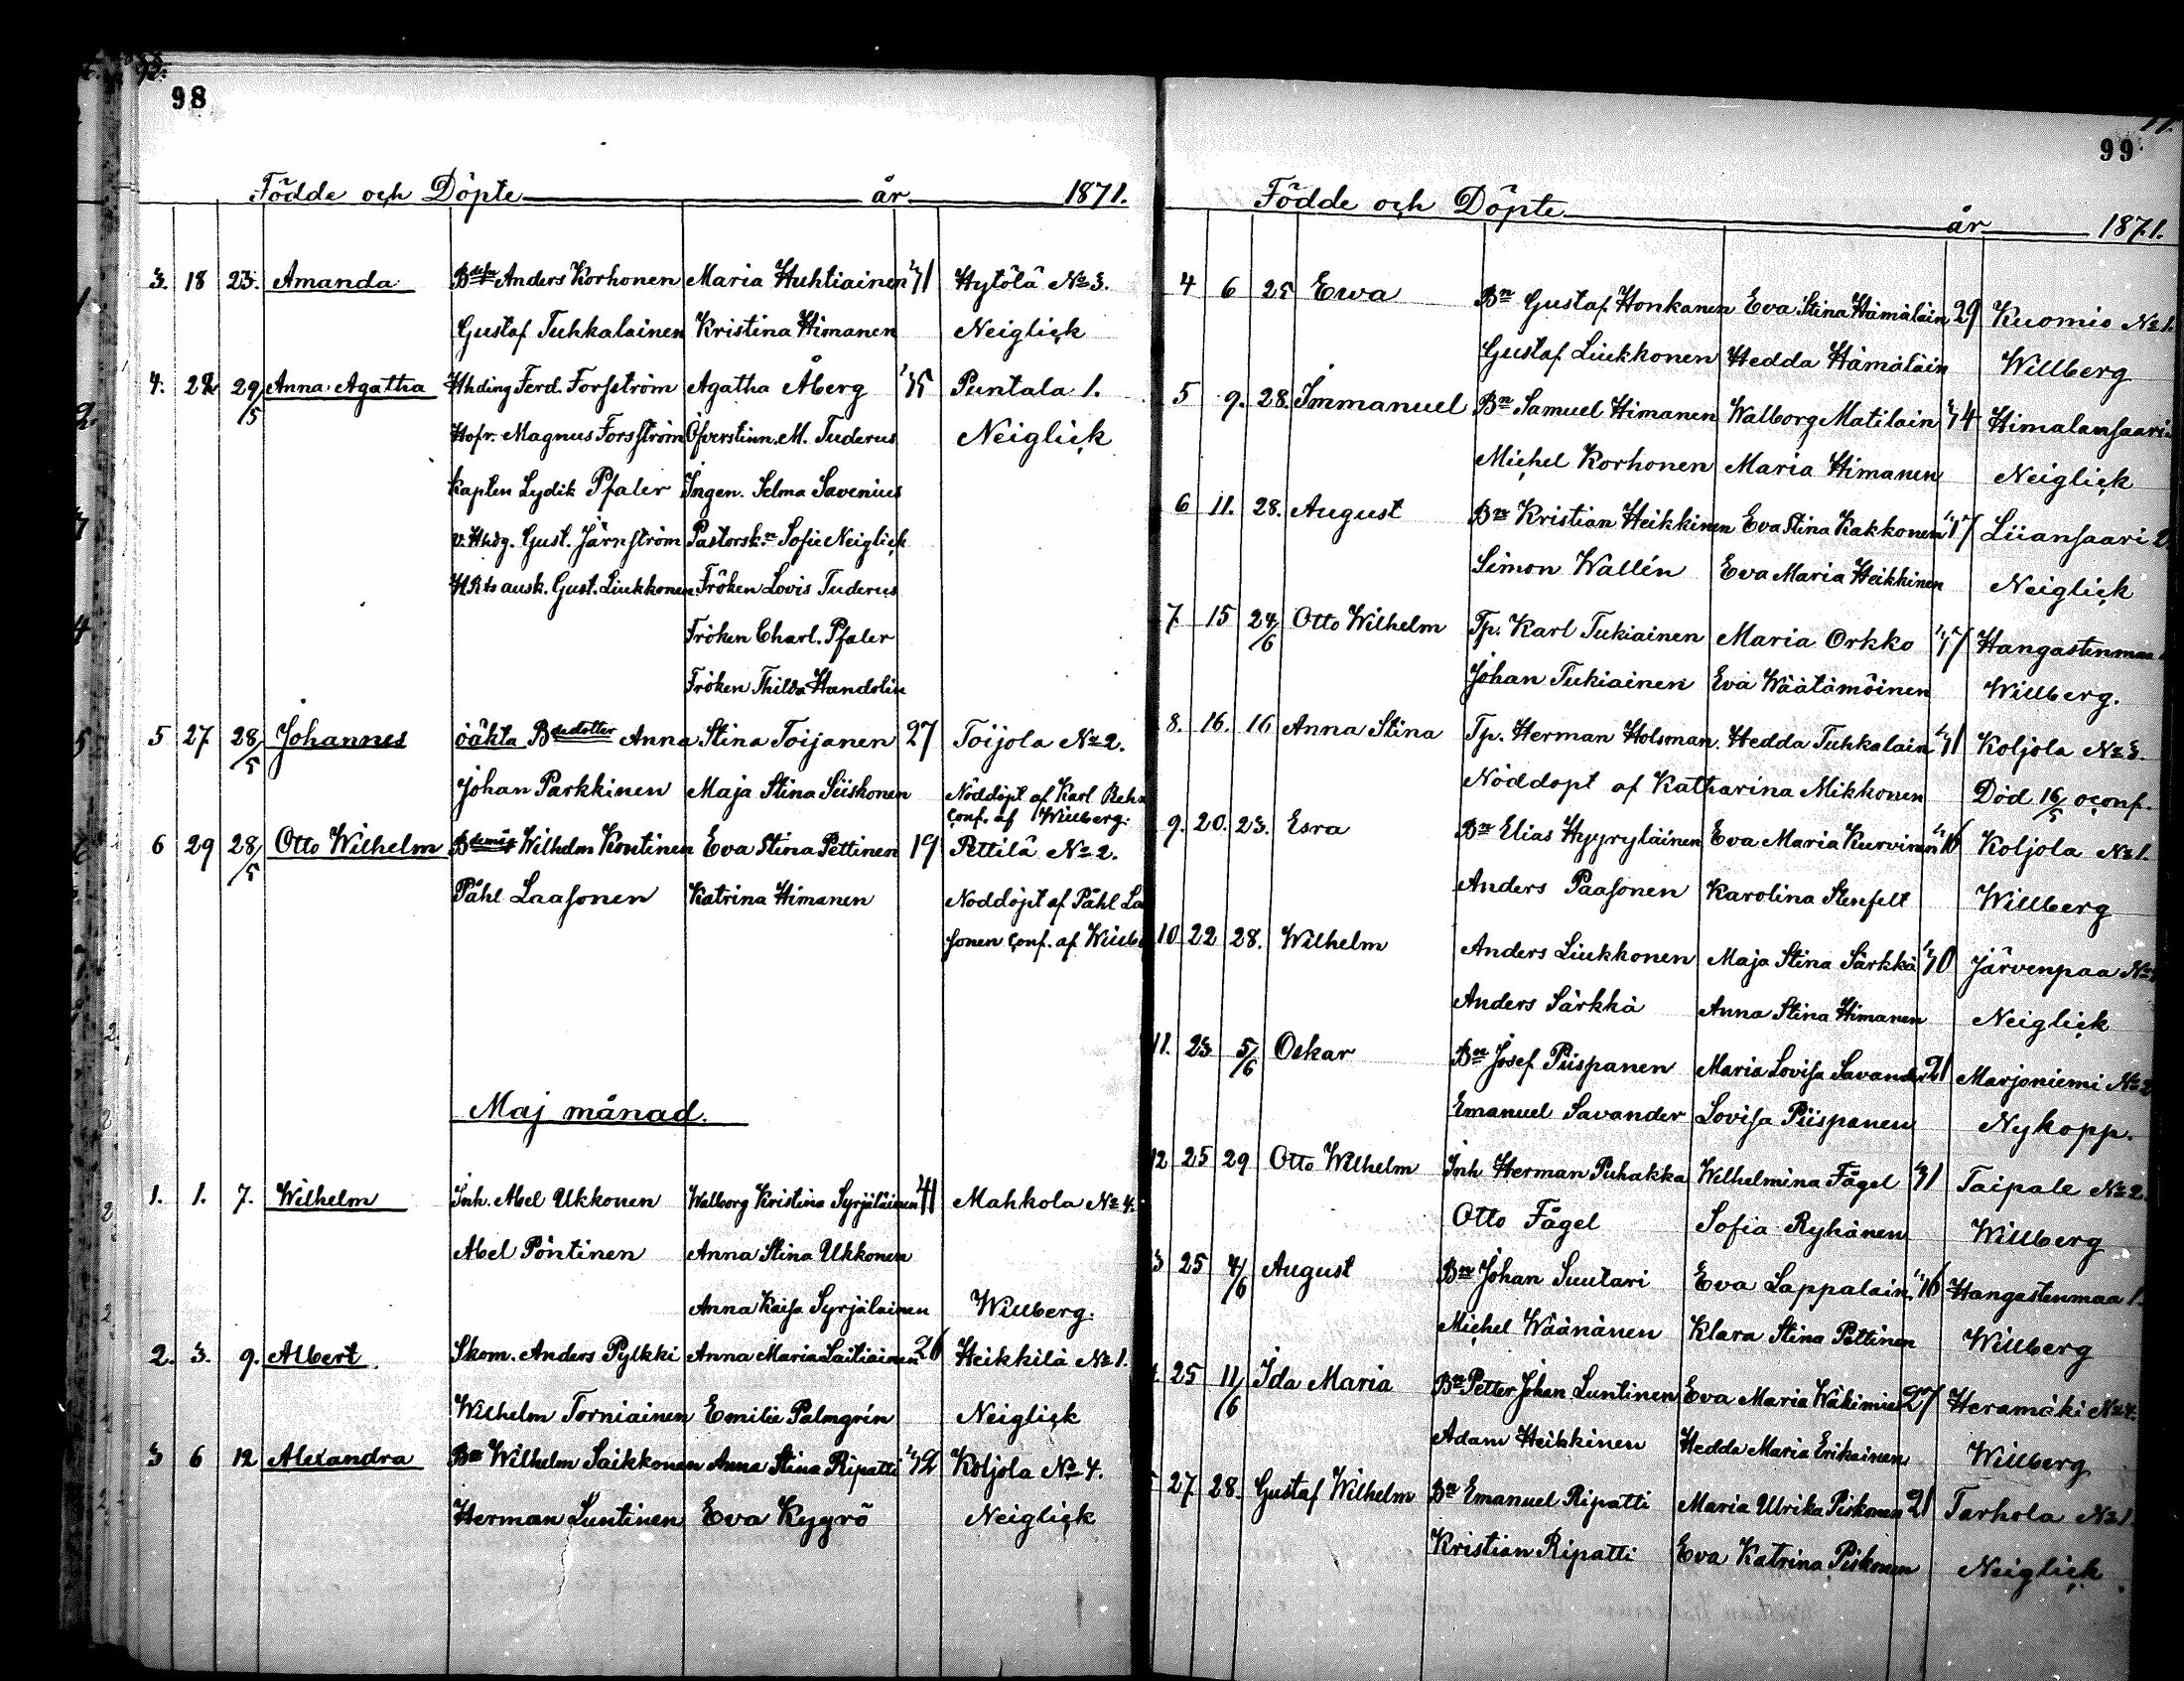 98
Födde och Döpte år 1871.
3. 18 23. Amanda Anders Korhonen Maria Huhtiainen Hytölä No 3.
Gustaf Tuhkalainen Kristina Himanen Neiglick
4. 28 29/5 Anna Agatha Hhding Ferd. Forsström Agatha Åberg Puntala 1.
Hofr. Magnus Forsström Öfverstinn. M. Tuderus Neiglick
Kapten Lydik Pfaler Ingen. Selma Savenius
v. Hhdg. Gust. Järnström Pastorsk:n Sofie Neiglick
HRts ausk. Gust. Liukkonen. Fröken Lovis Tuderus
Fröken Charl. Pfaler
Fröken Thilda Handolin
5 27 28/5 Johannes oäkta Bdedotter Anna Stina Toijanen 27 Toijola No 2.
Johan Parkkinen Maja Stina Siiskonen Nöddöpt af Karl Behm
Conf. af Willberg.
6 29 28/5 Otto Wilhelm Bdemåg Wilhelm Kontinen Eva Stina Pettinen 19 Pettilä No 2.
Påhl Laasonen Katrina Himanen Noddöpt af Påhl Laa
sonen Conf. af Willb
Maj månad.
1. 1. 7. Wilhelm Inh. Abel Ukkonen Walborg Kristina Syrjäläinen 41 Mahkola No 4.
Abel Pöntinen Anna Stina Ukkonen
Anna Kaisa Syrjäläinen Willberg.
2. 3. 9. Albert Skom. Anders Pylkki Anna Maria Laitiainen 26 Heikkilä No 1.
Wilhelm Torniainen Emilie Palmgrin Neiglick
3 6 12 Alexandra Bn Wilhelm Saikkonen Anna Stina Ripatti Koljola No 4.
Herman Luntinen Eva Kyyrö Neiglick
99
Födde och Döpte år 1871.
4 6 25 Ewa Bn Gustaf Honkanen Eva Stina Hämäläin 29 Kuomio No 1.
Gustaf Liukkonen Hedda Hämäläin Willberg
5 9. 28. Immanuel Bn Samuel Himanen Walborg Matilain Himalansaari
Michel Korhonen Maria Himanen Neiglick
6 11. 28. August Bn Kristian Heikkinen Eva Stina Kakkonen Liiansaari 2.
Simon Wallén Eva Maria Heikkinen Neiglick
7. 15 24/6 Otto Wilhelm Tp. Karl Tukiainen Maria Orkko Hangastenmaa
Johan Tukiainen Eva Wäätämöinen Willberg.
8. 16. 16 Anna Stina Tp. Herman Holsman. Hedda Tuhkalain Koljola No 3.
Nöddopt af Katharina Mikkonen Död 16/5 oconf.
9. 20. 23. Esra Bn Elias Hyyryläinen Eva Maria Kurvinen Koljola No 1.
Anders Paasonen Karolina Stenfelt Willberg
10 22 28. Wilhelm Anders Liukkonen Maja Stina Särkkä Järvenpaa No
Anders Särkkä Anna Stina Himanen Neiglick
11. 23 5/6 Oskar Bn Josef Piispanen Maria Lovisa Savander 21 Marjoniemi No 2
Emanuel Savander Lovisa Piispanen Nykopp.
12 25 29 Otto Wilhelm Inh Herman Puhakka Wilhelmina Fågel Taipale No 2.
Otto Fågel Sofia Ryhänen Willberg
3 25 4/6 August Bn Johan Suutari Eva Lappalain. Hangastenmaa 1.
Michel Wäänänen Klara Stina Pettinen Willberg
25 11/6 Ida Maria Bn Petter Johan Luntinen Eva Maria 27 Heramäki No 4.
Adam Heikkinen Hedda Maria Erikainen Willberg
27 28. Gustaf Wilhelm Bn Emanuel Ripatti Maria Ulrika Piskonen 21 Tarhola No 1.
Kristian Ripatti Eva Katrina Piskonen Neiglick